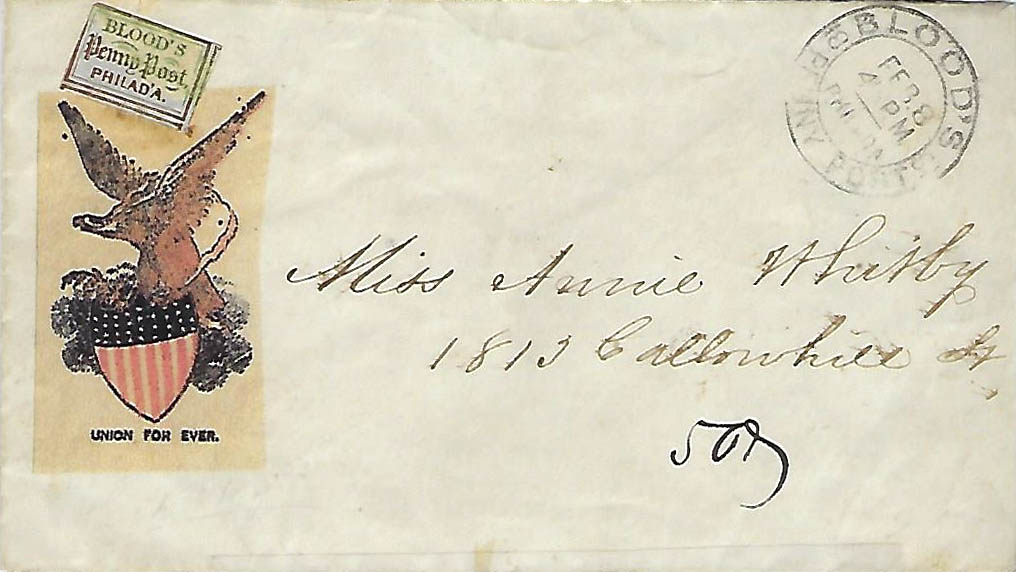 BLOOD'S
Penny Post
PHILAD'A.
BLOOD'S
FEB. 8
4 PM
PENNY POST
Miss Annie Whitby
1813 Callowhill St
UNION FOR EVER.